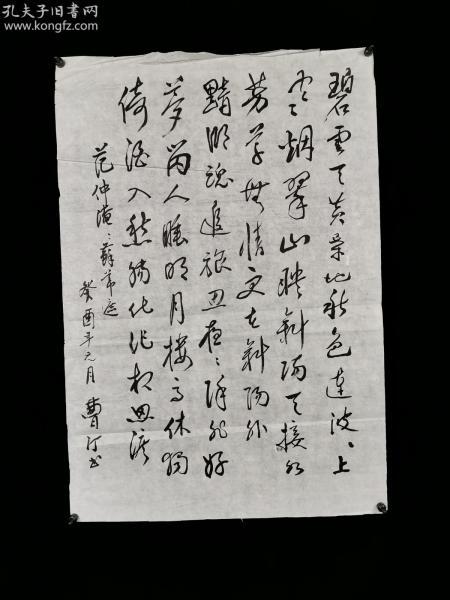 孔夫子旧书网
www.kongfz.com
碧雲天黄葉地秋色連波〻上
寒烟翠山映斜陽天接水
芳草無情更在斜陽外
黯鄉魂追旅思夜〻除非好
夢留人睡明月樓高休獨
倚酒入愁腸化作相思淚
范仲淹〻蘇幕遮
癸酉年元月 曹 书